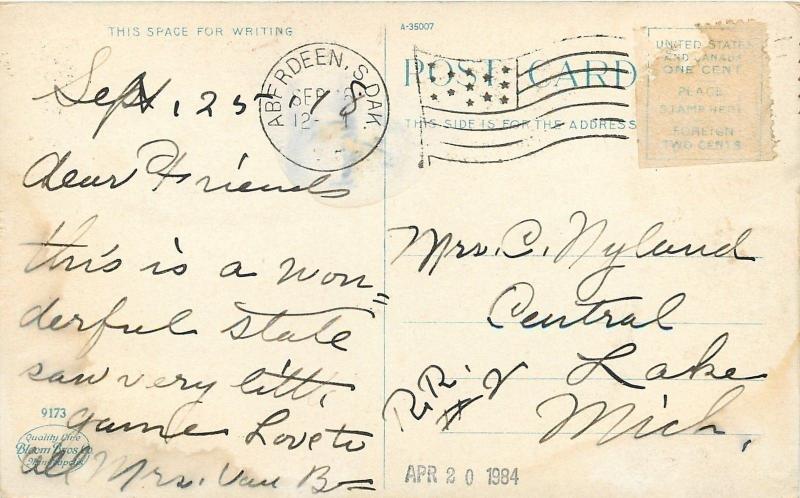 THIS SPACE FOR WRITING
A-35007
POST CARD
THIS SIDE IS FOR THE ADDRESS
UNITED STATES
AND CANADA
ONE CENT
PLACE
STAMP HERE
FOREIGN
TWO CENTS
ABERDEEN, S. DAK.
SEP
12-
Sept, 25
dear Friends
this is a won"
derful state
saw very little
game Love to
all Mrs. Van B
9173
Quality Line
Bloom Bros. Co
Minneapolis
Mrs. C. Nyland
Central
Lake
R.R. # 2
Mich,
APR 20 1984